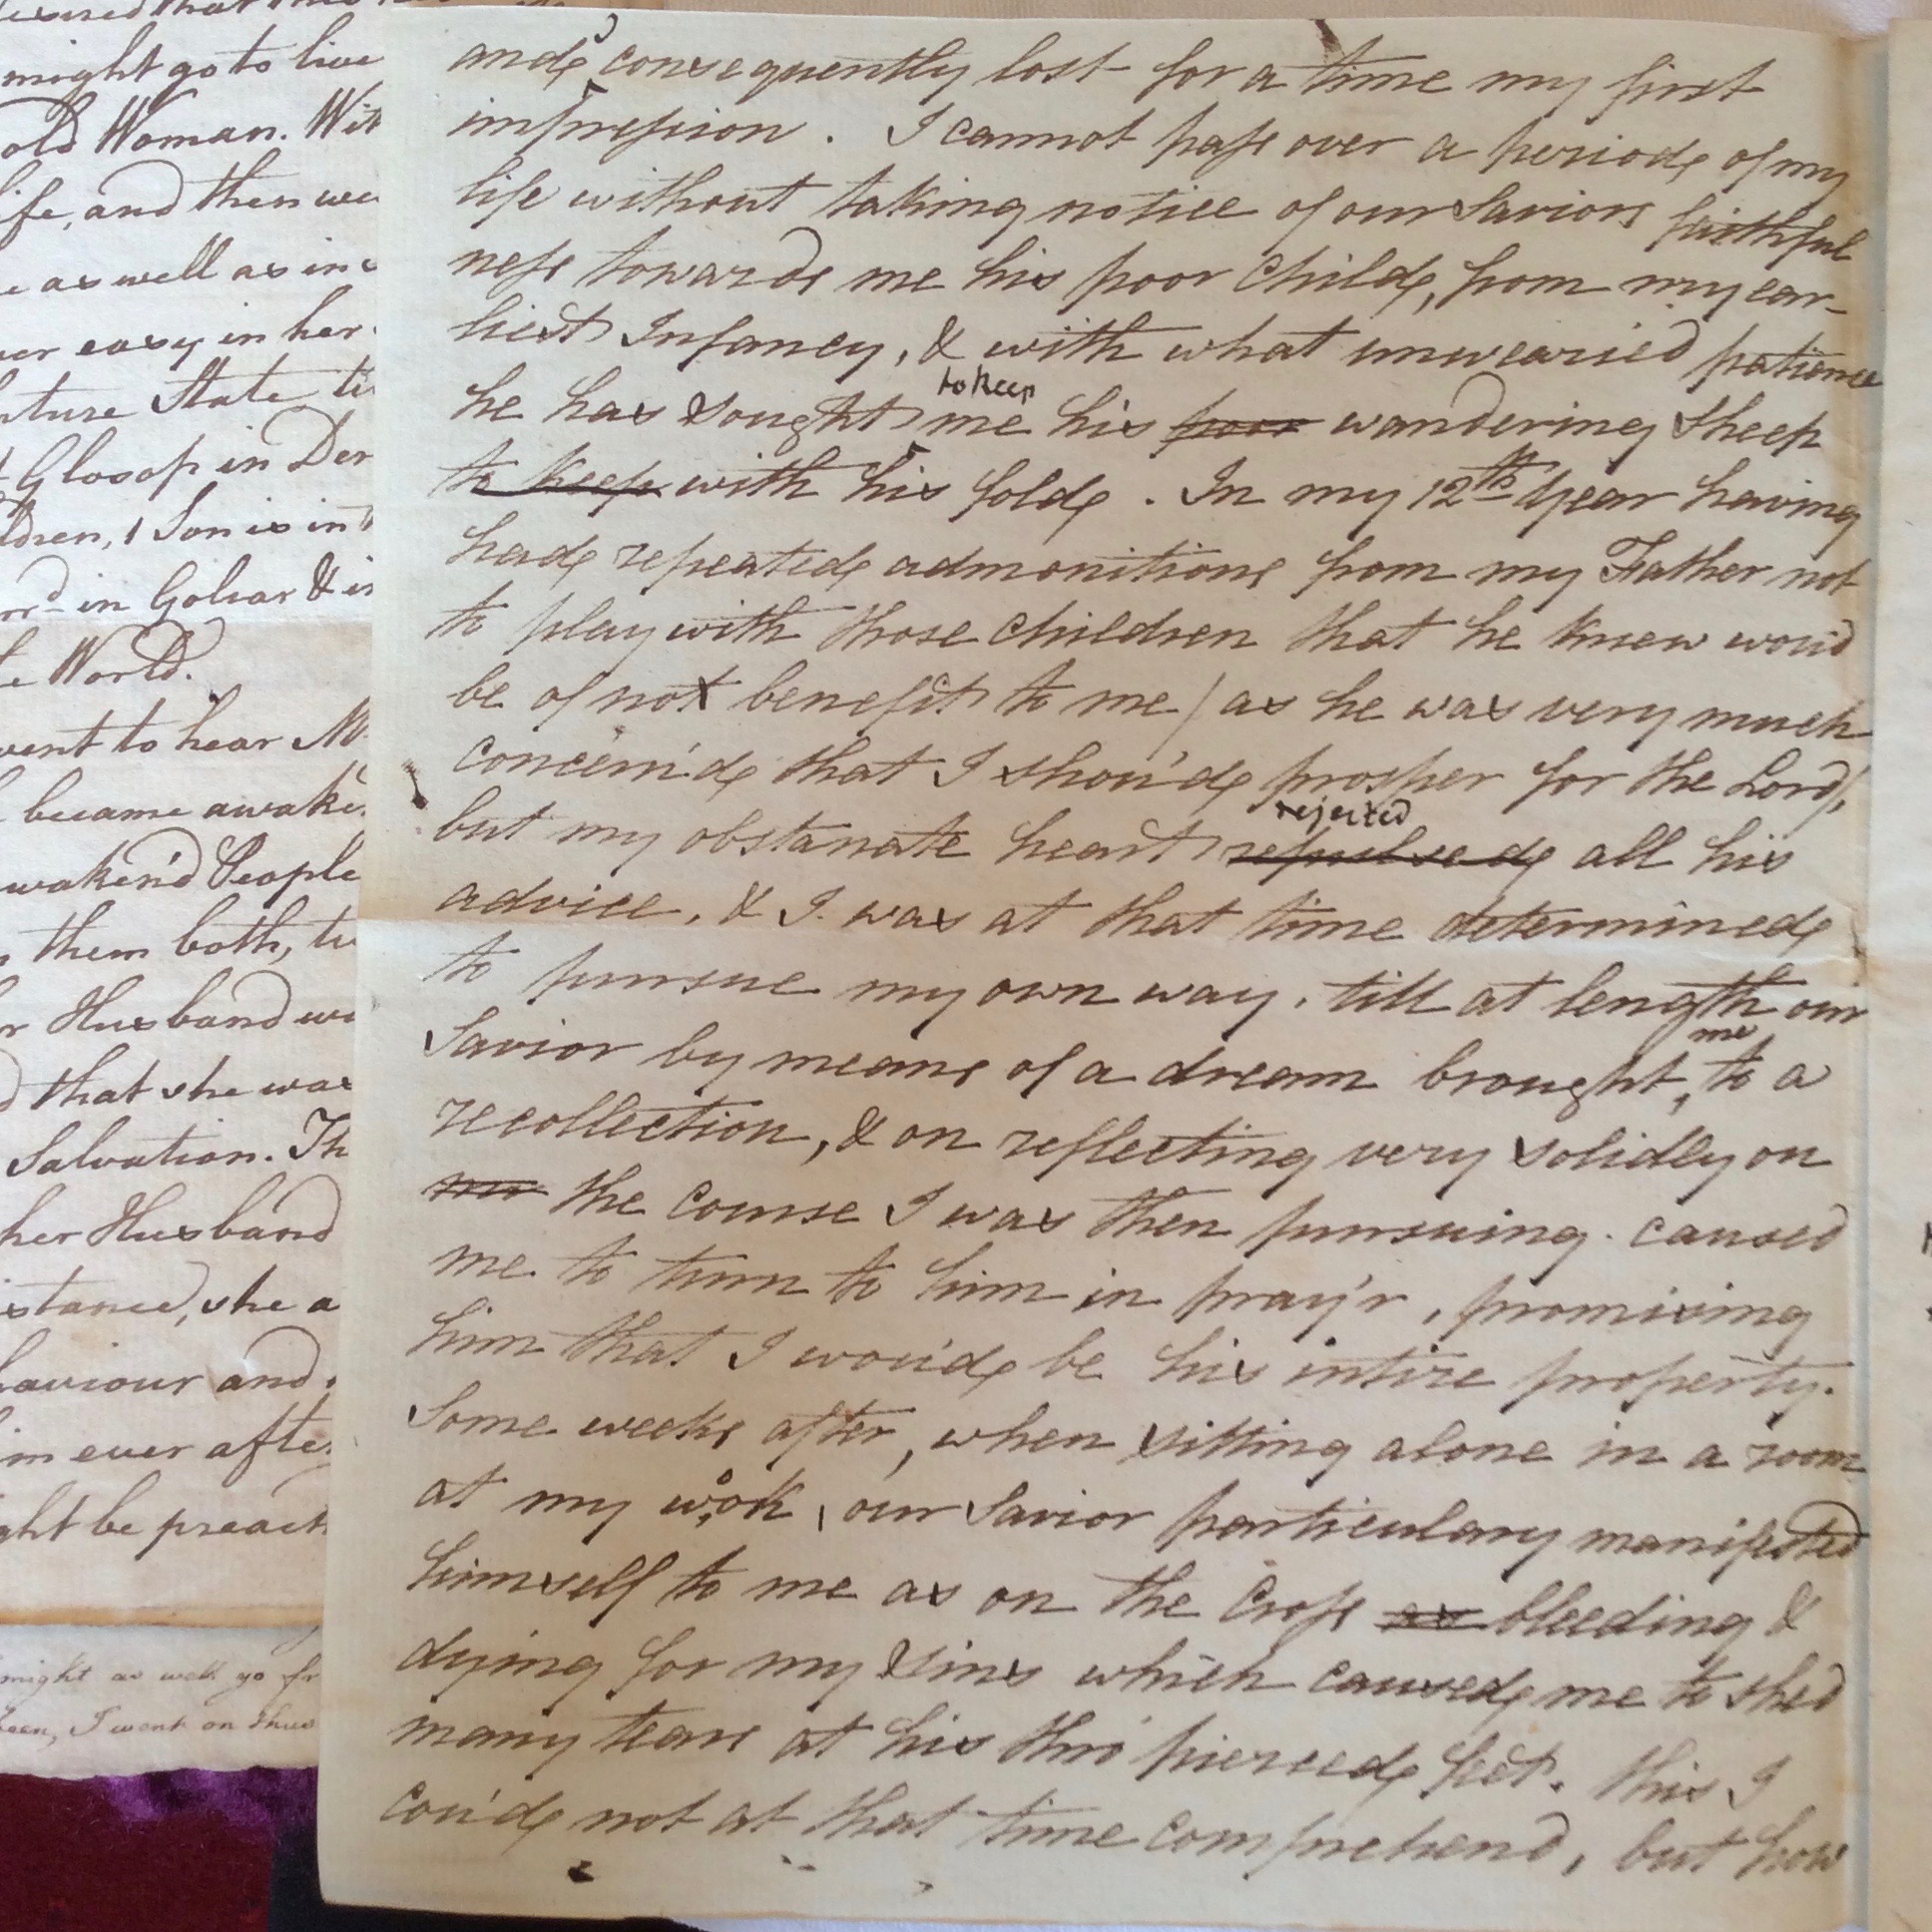 might go to live
old Woman. Wit
ife, and then we
e as well as in
er easy in her
uture State
Glosop in Der
ldren, 1 Son is in
in Golcar & is
e World.
went to hear M
became awake
waken'd People
them both, tw
Husband w
that she was
Salvation. Th
her Husband
istance, she a
haviour and
im ever after
ght be preach
might as well go
been, I went on thus
and consequently lost for a time my first
impression. I cannot pass over a period of my
life without taking notice of our Saviors faithful
ness towards me his poor Child, from my ear-
liest Infancy, & with what unwearied patience
to keep
he has sought me his poor wandering sheep
to keep with his fold. In my 12th Year having
had repeated admonitions from my Father not
to play with those children that he knew wou'd
be of not benefit to me / as he was very much
concern'd that I shou'd prosper for the Lord/,
rejected
but my obstanate heart repulsed all his
advice, & I was at that time determined
to pursue my own way, till at length our
me
Savior by means of a dream brought to a
recollection, & on reflecting very solidly on
my the course I was then pursuing. caused
me to turn to him in pray'r, promising
him that I wou'd be his intire property.
Some weeks after, when sitting alone in a room
at my work, our Savior particulary manifested
himself to me as on the Cross as bleeding &
dying for my sins which caused me to shed
many tears at his thro' pierced feet. this I
cou'd not at that time comprehend, but how